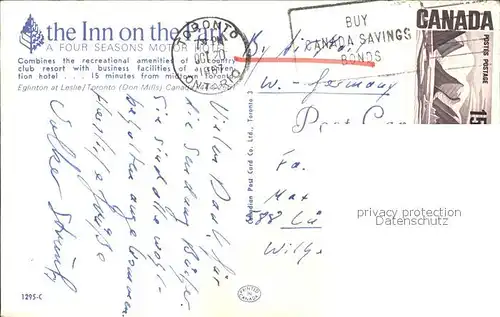 the Inn on the Park
A FOUR SEASONS MOTOR
Combines the recreational amenities of a country
club resort with business facilities of a
tion hotel ... 15 minutes from midtown Toronto
Eglinton at Leslie/Toronto (Don Mills) Canada
TORONTO
PM
OCT 20
ONTARIO
BUY
CANADA SAVINGS
BONDS
CANADA
POSTES POSTAGE
15
By Airmail
W.-Germany
Post Card
Fa.
Max
588 Lü
Wilh
Vielen Dank für
die Sendung Bücher
Sie sind alle wohl-
behalten angekommen.
Herzliche Grüße
Volker
Canadian Post Card Co. Ltd., Toronto 3
1295-C
PRINTED
IN
CANADA
privacy protection
Datenschutz